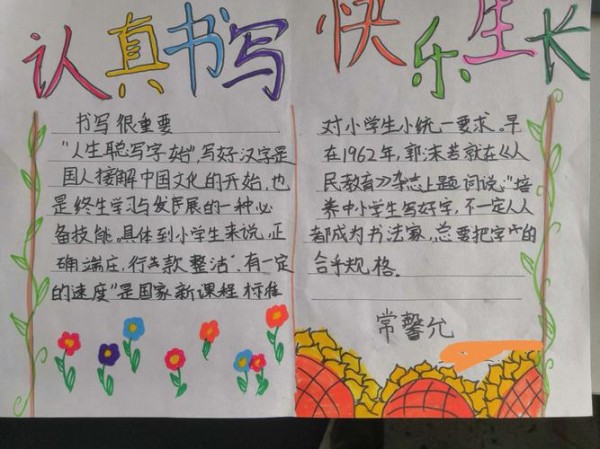 认真书写 快乐生长
书写很重要
"人生聪写字始",写好汉字是
国人接解中国文化的开始,也
是终生学习与发民展的一种必
备技能。具体到小学生来说,正
确端庄,行款整洁".有一定
的速度"是国家新课程标准
对小学生小统一要求。早
在1962年,郭沫若就在《人
民教育》杂志上题词说:"培
养中小学生写好字,不一定人人
都成为书法家,总要把字的
合乎规格。
常馨允